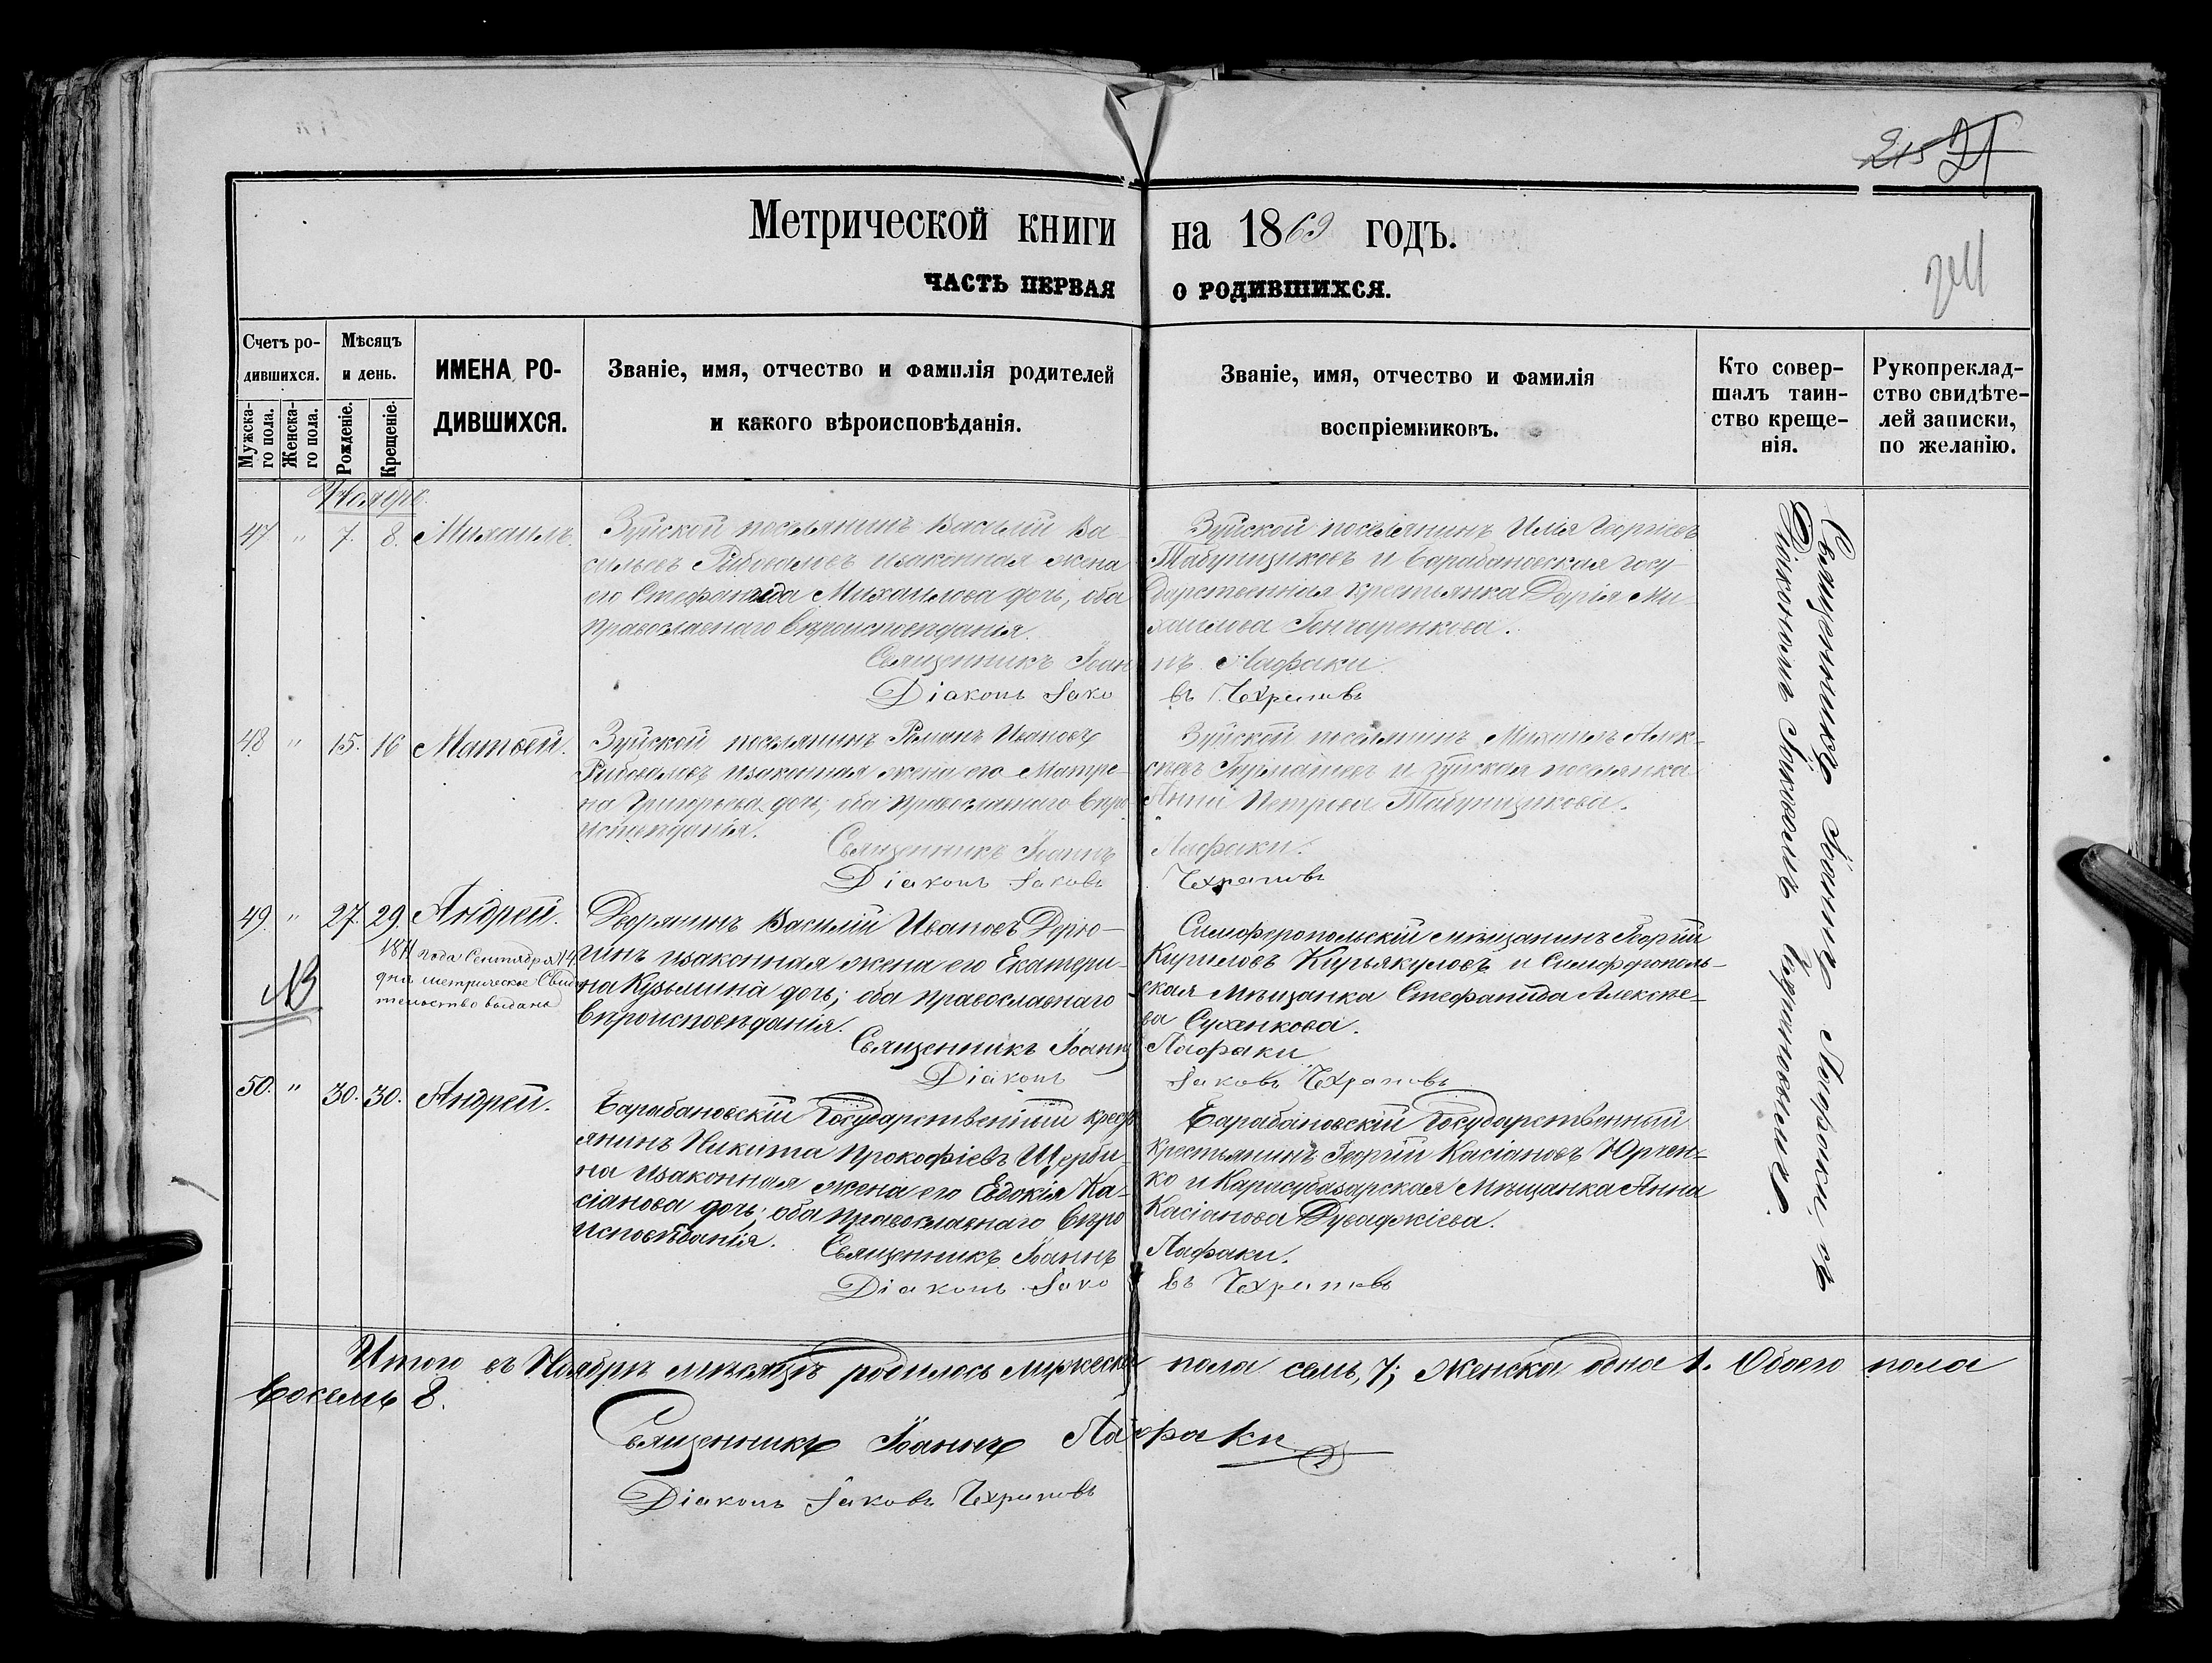 215 21
Метрической книги на 1869 годъ.
ЧАСТЬ ПЕРВАЯ О РОДИВШИХСЯ.
Счетъ ро-
дившихся.
Мужска-
го пола.
Женска-
го пола.
Мѣсяцъ
и день.
Рожденіе.
Крещеніе.
ИМЕНА РО-
ДИВШИХСЯ.
Званіе, имя, отчество и фамилія родителей
и какого вѣроисповѣданія.
Званіе, имя, отчество и фамилія
воспріемниковъ.
Кто совер-
шалъ таин-
ство креще-
нія.
Рукопреклад-
ство свидѣте-
лей записки,
по желанію.
Ноябрь.
47 " 7. 8. Михаилъ.
Зуйской поселянинъ Василій Ва-
сильевъ Рыбоваловъ изаконная жена
его Стефанида Михаилова дочь, оба
православнаго вѣроисповѣданія.
Зуйской поселянинъ Илія
Табунщиковъ и Барабановская госу-
дарственная крестьянка Дарія Ми-
хаилова Гончаренкова.
Священникъ Іоаннъ Лафаки
Діаконъ Іаковъ Чехрановъ
48 " 15. 16 Матвей.
Зуйской поселянинъ Романъ Ивановъ
Рыбоваловъ изаконная жена его Матре-
на Григорьева дочь, оба православнаго вѣро
исповѣданія.
Зуйской поселянинъ Михаилъ Алек-
сѣевъ и Зуйская поселянка
Анна Петрова Табунщикова.
Священникъ Іоаннъ Лафаки.
Діаконъ Іаковъ Чехрановъ
49. " 27. 29. Андрей.
1871 года Сентября 14
дня метрическое Свид
тельство выдано
NB
Дворянинъ Василій Ивановъ Дерю-
гинъ изаконная жена его Екатери-
на Кузьмина дочь; оба православнаго
вѣроисповѣданія.
Симферопольскій мѣщанинъ Георгій
Кириловъ Кирьякуловъ и Симферополь-
ская мѣщанка Стефанида Алексѣе-
ва Сухенкова.
Священникъ Іоаннъ Лафаки
Діаконъ Іаковъ Чехрановъ
50. " 30. 30. Андрей.
Барабановскій Государственный кресть
янинъ Никита Прокофіевъ Щерби-
на изаконная жена его Евдокія Ка-
сіанова дочь; оба православнаго вѣро
исповѣданія.
Барабановскій Государственный
крестьянинъ Георгій Касіановъ Юрчен-
ко и Карасубазарская мѣщанка Анна
Касіанова Дуваджіева.
Священникъ Іоаннъ Лафаки.
Діаконъ Іаковъ Чехрановъ
Священникъ Іоаннъ Лафаки съ
Діакономъ Іаковомъ
Итого въ Ноябрѣ мѣсяцѣ родилось мужеска пола семь, 7; женска одна 1. Обоего пола
восемь 8.
Священникъ Іоаннъ Лафаки
Діаконъ Іаковъ Чехрановъ